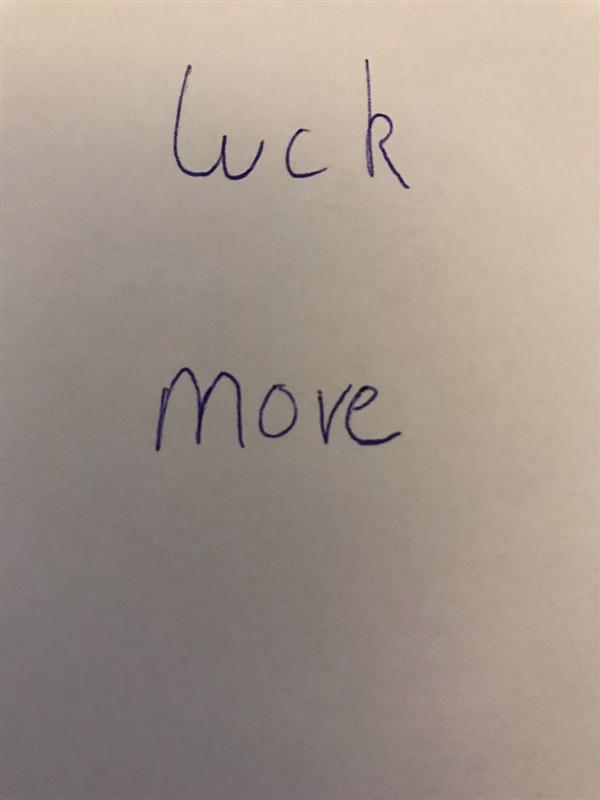 luck
move